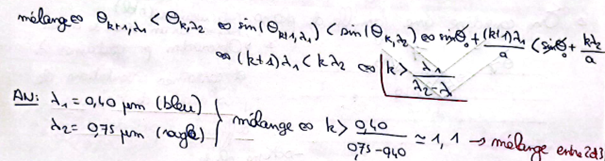 mélange ⇔ θ_{k+1,λ₁} < θ_{k,λ₂} ⇔ sin(θ_{k+1,λ₁}) < sin(θ_{k,λ₂}) ⇔ sinθ₀ + (k+1)λ₁/a < sinθ₀ + kλ₂/a
⇔ (k+1)λ₁ < kλ₂ ⇔ k > λ₁/(λ₂-λ₁)
AN: λ₁ = 0,40 μm (bleu)
λ₂ = 0,75 μm (rouge)
} mélange ⇔ k > 0,40/(0,75-0,40) ≃ 1,1 → mélange entre 2 et 3